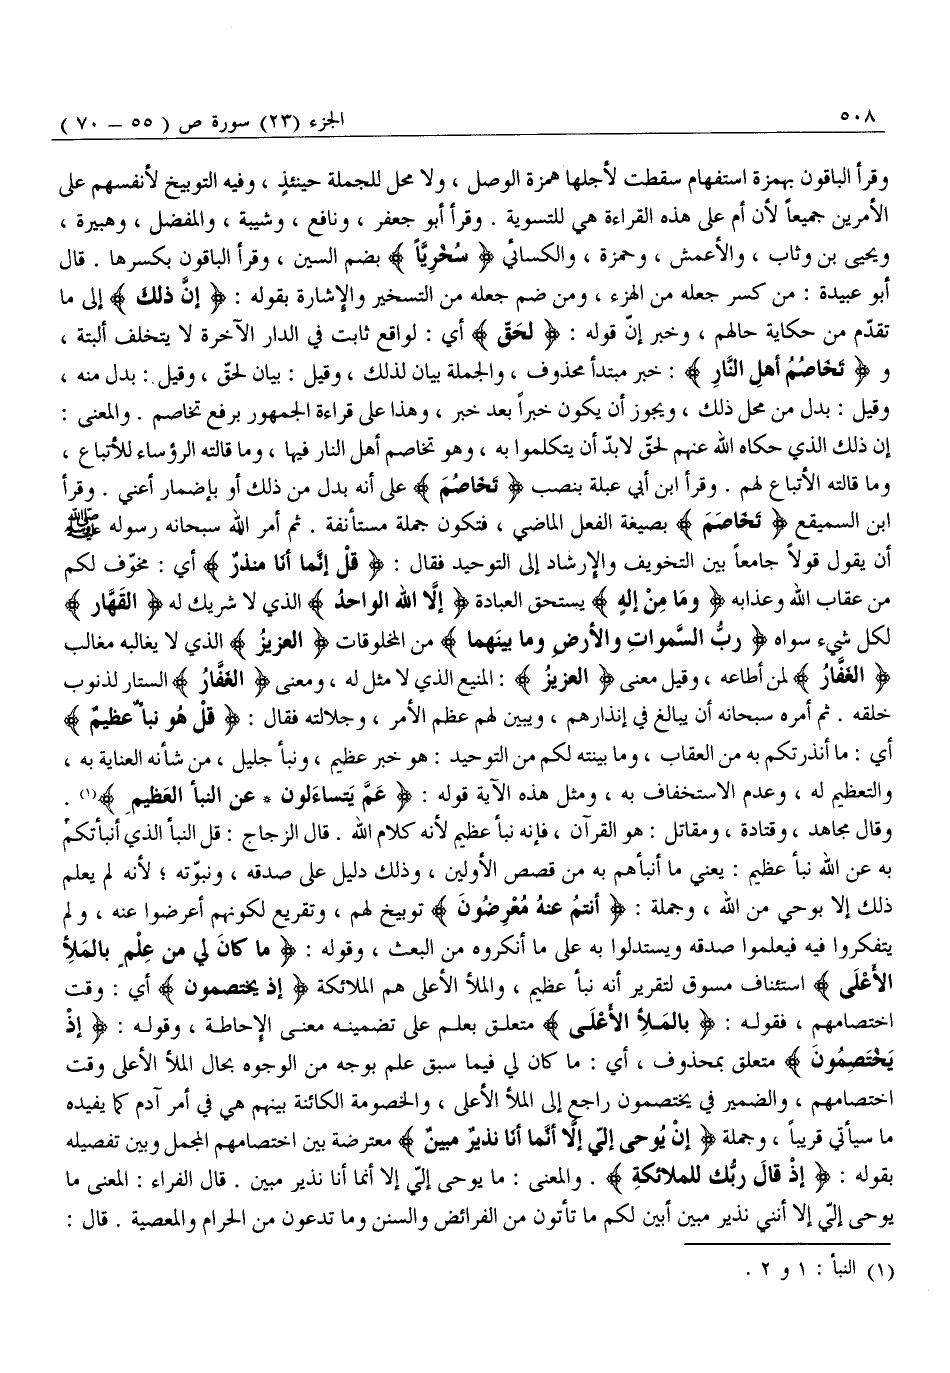 ٥٠٨ الجزء (٢٣) سورة ص ( ٥٥ – ٧٠ )
وقرأ الباقون بهمزة استفهام سقطت لأجلها همزة الوصل ، ولا محل للجملة حينئذٍ ، وفيه التوبيخ لأنفسهم على
الأمرين جميعاً لأن أم على هذه القراءة هي للتسوية . وقرأ أبو جعفر ، ونافع ، وشيبة ، والمفضل ، وهبيرة ،
ويحيى بن وثاب ، والأعمش ، وحمزة ، والكسائي ﴿ سُخْرِيَّاً ﴾ بضم السين ، وقرأ الباقون بكسرها . قال
أبو عبيدة : من كسر جعله من الهزء ، ومن ضم جعله من التسخير والإشارة بقوله : ﴿ إنَّ ذلكَ ﴾ إلى ما
تقدّم من حكاية حالهم ، وخبر إنّ قوله : ﴿ لحَقّ ﴾ أي : لواقع ثابت في الدار الآخرة لا يتخلف ألبتة ،
و ﴿ تَخَاصُمُ أهلِ النَّارِ ﴾ : خبر مبتدأ محذوف ، والجملة بيان لذلك ، وقيل : بيان لحقّ ، وقيل : بدل منه ،
وقيل : بدل من محل ذلك ، ويجوز أن يكون خبراً بعد خبر ، وهذا على قراءة الجمهور برفع تخاصم . والمعنى :
إن ذلك الذي حكاه الله عنهم لحقّ لابدّ أن يتكلموا به ، وهو تخاصم أهل النار فيها ، وما قالته الرؤساء للأتباع ،
وما قالته الأتباع لهم . وقرأ ابن أبي عبلة بنصب ﴿ تَخاصُمَ ﴾ على أنه بدل من ذلك أو بإضمار أعني . وقرأ
ابن السميقع ﴿ تَخَاصَمَ ﴾ بصيغة الفعل الماضي ، فتكون جملة مستأنفة . ثم أمر الله سبحانه رسوله ﷺ
أن يقول قولاً جامعاً بين التخويف والإرشاد إلى التوحيد فقال : ﴿ قلْ إنَّما أنَا منذرٌ ﴾ أي : مخوّف لكم
من عقاب الله وعذابه ﴿ ومَا مِنْ إلهٍ ﴾ يستحق العبادة ﴿ إلَّا الله الواحدُ ﴾ الذي لا شريك له ﴿ القَهَّار ﴾
لكل شيء سواه ﴿ ربُّ السَّمواتِ والأرضِ وما بينَهما ﴾ من المخلوقات ﴿ العزيزُ ﴾ الذي لا يغالبه مغالب
﴿ الغَفَّارُ ﴾ لمن أطاعه ، وقيل معنى ﴿ العزيزُ ﴾ : المنيع الذي لا مثل له ، ومعنى ﴿ الغَفَّارُ ﴾ الستار لذنوب
خلقه . ثم أمره سبحانه أن يبالغ في إنذارهم ، ويبين لهم عظم الأمر ، وجلالته فقال : ﴿ قلْ هُو نبأٌ عظيمٌ ﴾
أي : ما أنذرتكم به من العقاب ، وما بينته لكم من التوحيد : هو خبر عظيم ، ونبأ جليل ، من شأنه العناية به ،
والتعظيم له ، وعدم الاستخفاف به ، ومثل هذه الآية قوله : ﴿ عَمَّ يَتساءَلون * عن النبأ العَظيمِ ﴾(١) .
وقال مجاهد ، وقتادة ، ومقاتل : هو القرآن ، فإنه نبأ عظيم لأنه كلام الله . قال الزجاج : قل النبأ الذي أنبأتكم
به عن الله نبأ عظيم : يعني ما أنبأهم به من قصص الأولين ، وذلك دليل على صدقه ، ونبوّته ؛ لأنه لم يعلم
ذلك إلا بوحي من الله ، وجملة : ﴿ أنتمُ عنهُ مُعْرِضُونَ ﴾ توبيخ لهم ، وتقريع لكونهم أعرضوا عنه ، ولم
يتفكروا فيه فيعلموا صدقه ويستدلوا به على ما أنكروه من البعث ، وقوله : ﴿ ما كانَ لي من عِلْمٍ بالمَلأِ
الأَعْلَى ﴾ استئناف مسوق لتقرير أنه نبأ عظيم ، والملأ الأعلى هم الملائكة ﴿ إذ يختصمون ﴾ أي : وقت
اختصامهم ، فقوله : ﴿ بالمَلأِ الأَعْلَى ﴾ متعلق بعلم على تضمينه معنى الإحاطة ، وقوله : ﴿ إذْ
يَخْتَصِمُونَ ﴾ متعلق بمحذوف ، أي : ما كان لي فيما سبق علم بوجه من الوجوه بحال الملأ الأعلى وقت
اختصامهم ، والضمير في يختصمون راجع إلى الملأ الأعلى ، والخصومة الكائنة بينهم هي في أمر آدم كما يفيده
ما سيأتي قريباً ، وجملة ﴿ إنْ يُوحى إليّ إلَّا أنَّما أنَا نذيرٌ مبينٌ ﴾ معترضة بين اختصامهم المجمل وبين تفصيله
بقوله : ﴿ إذْ قالَ ربُّك للملائكةِ ﴾ . والمعنى : ما يوحى إليّ إلا أنما أنا نذير مبين . قال الفراء : المعنى ما
يوحى إليّ إلا أنني نذير مبين أبين لكم ما تأتون من الفرائض والسنن وما تدعون من الحرام والمعصية . قال :
(١) النبأ : ١ و ٢ .